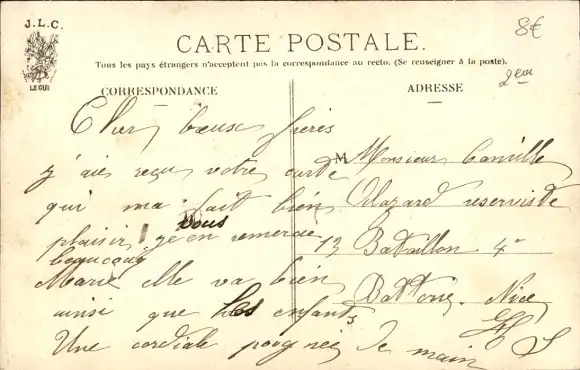 J.L.C.
LE GUI
8€
2em
CARTE POSTALE.
Tous les pays étrangers n'acceptent pas la correspondance au recto. (Se renseigner à la poste).
CORRESPONDANCE
ADRESSE
Cher beaux frères
j'ais reçu votre carte
qui ma fait bien
plaisir je vous en remercie
beaucoup
Marie Elle va bien
ainsi que les enfants
Une cordiale poignee de main
M Monsieur Camille
Alazard reserviste
13 Bataillon 4e
Batterie Nice
H S